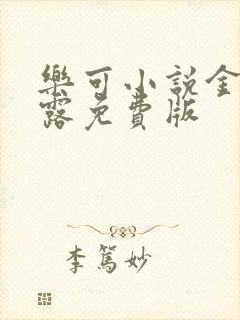 樂可小說金
露免費版
李篤妙